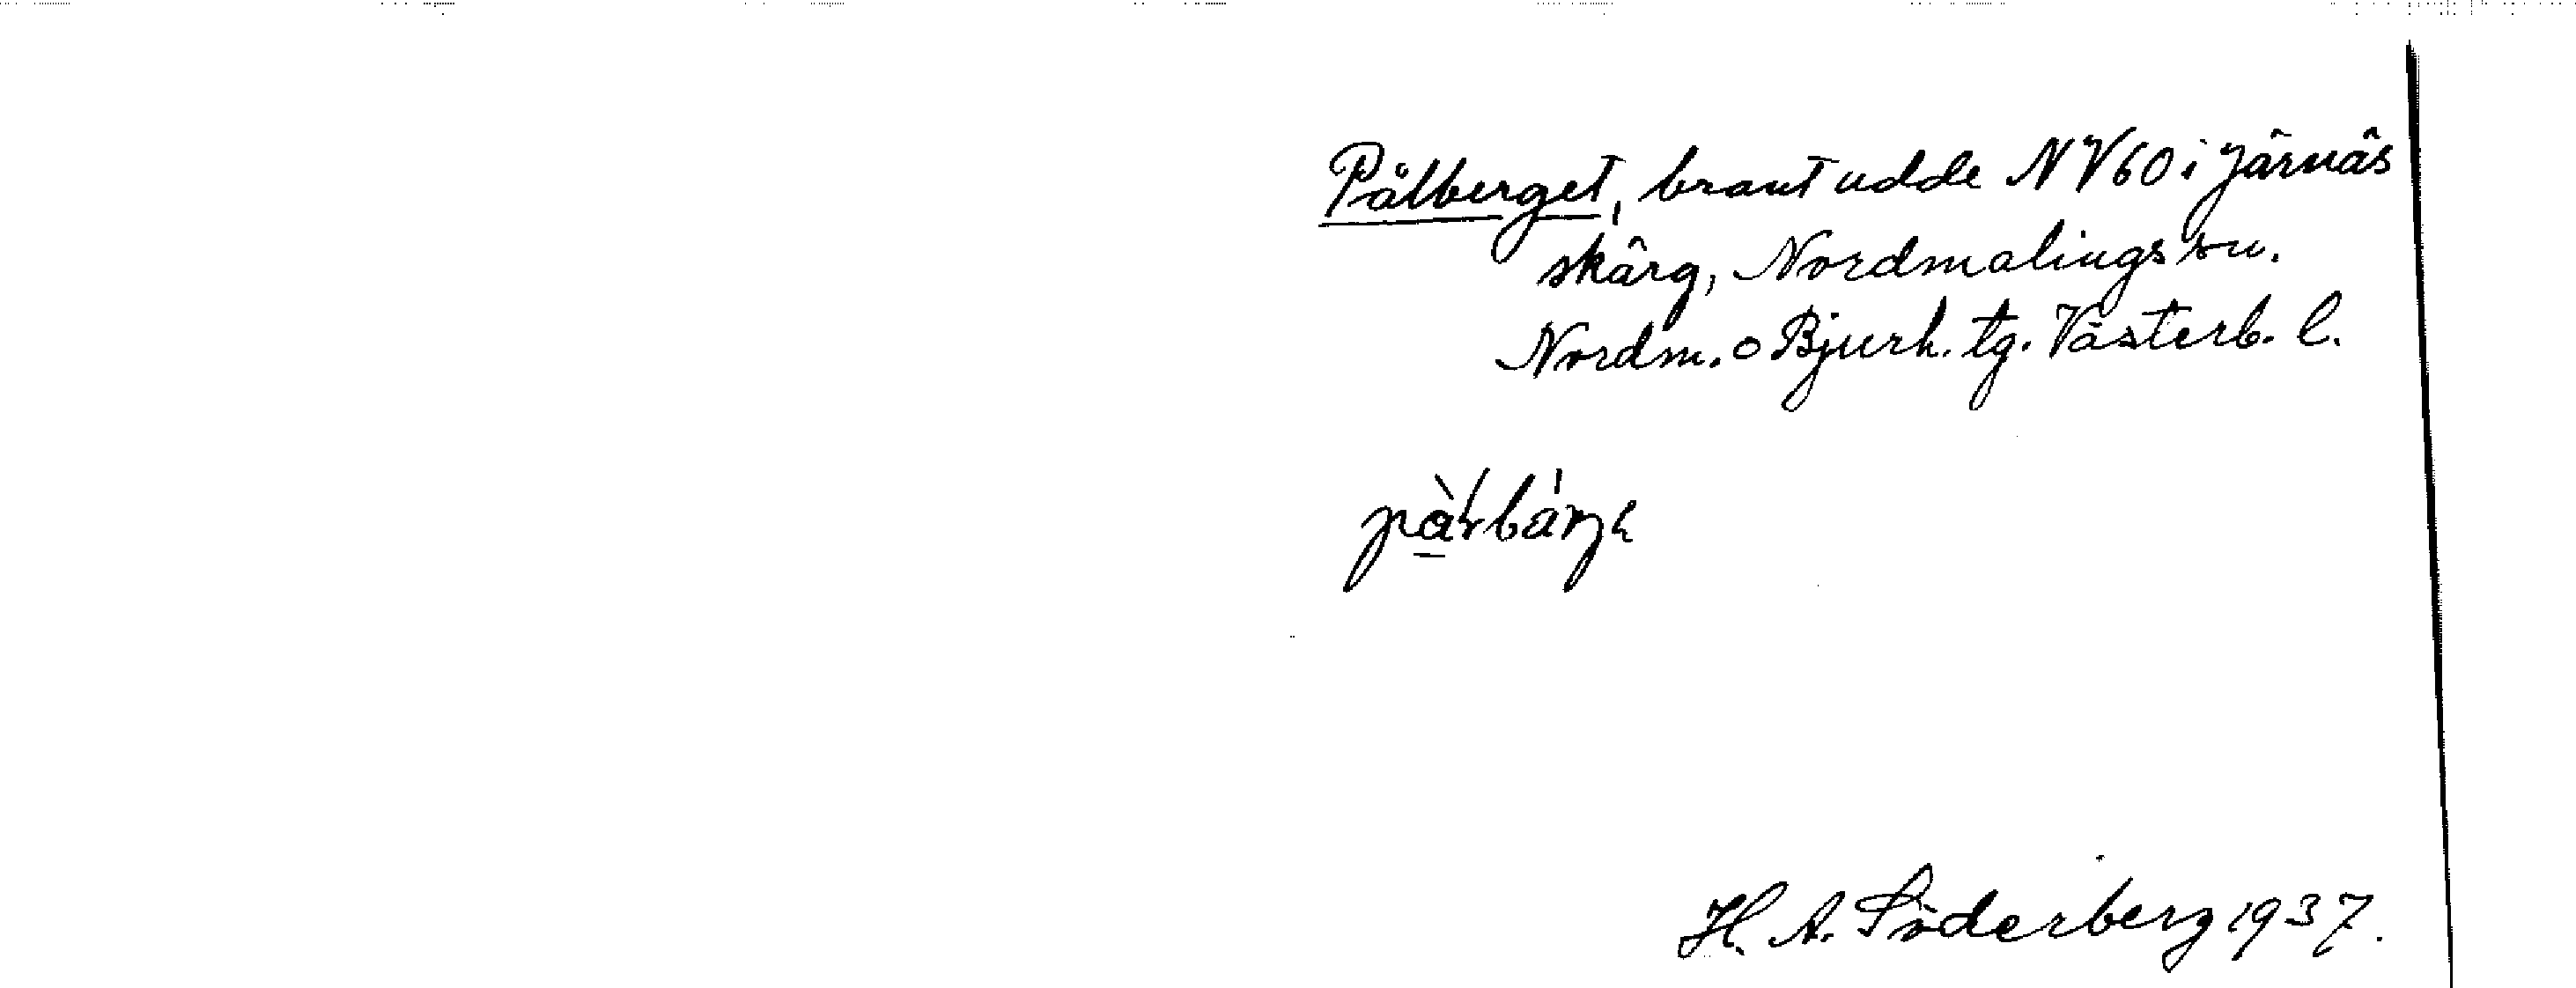 Pålberget, brant udde NV60 i Järnäs
skärg, Nordmalings sn.
Nordm. o Bjurh. tg. Västerb. l.
H. A. Söderberg 1937.